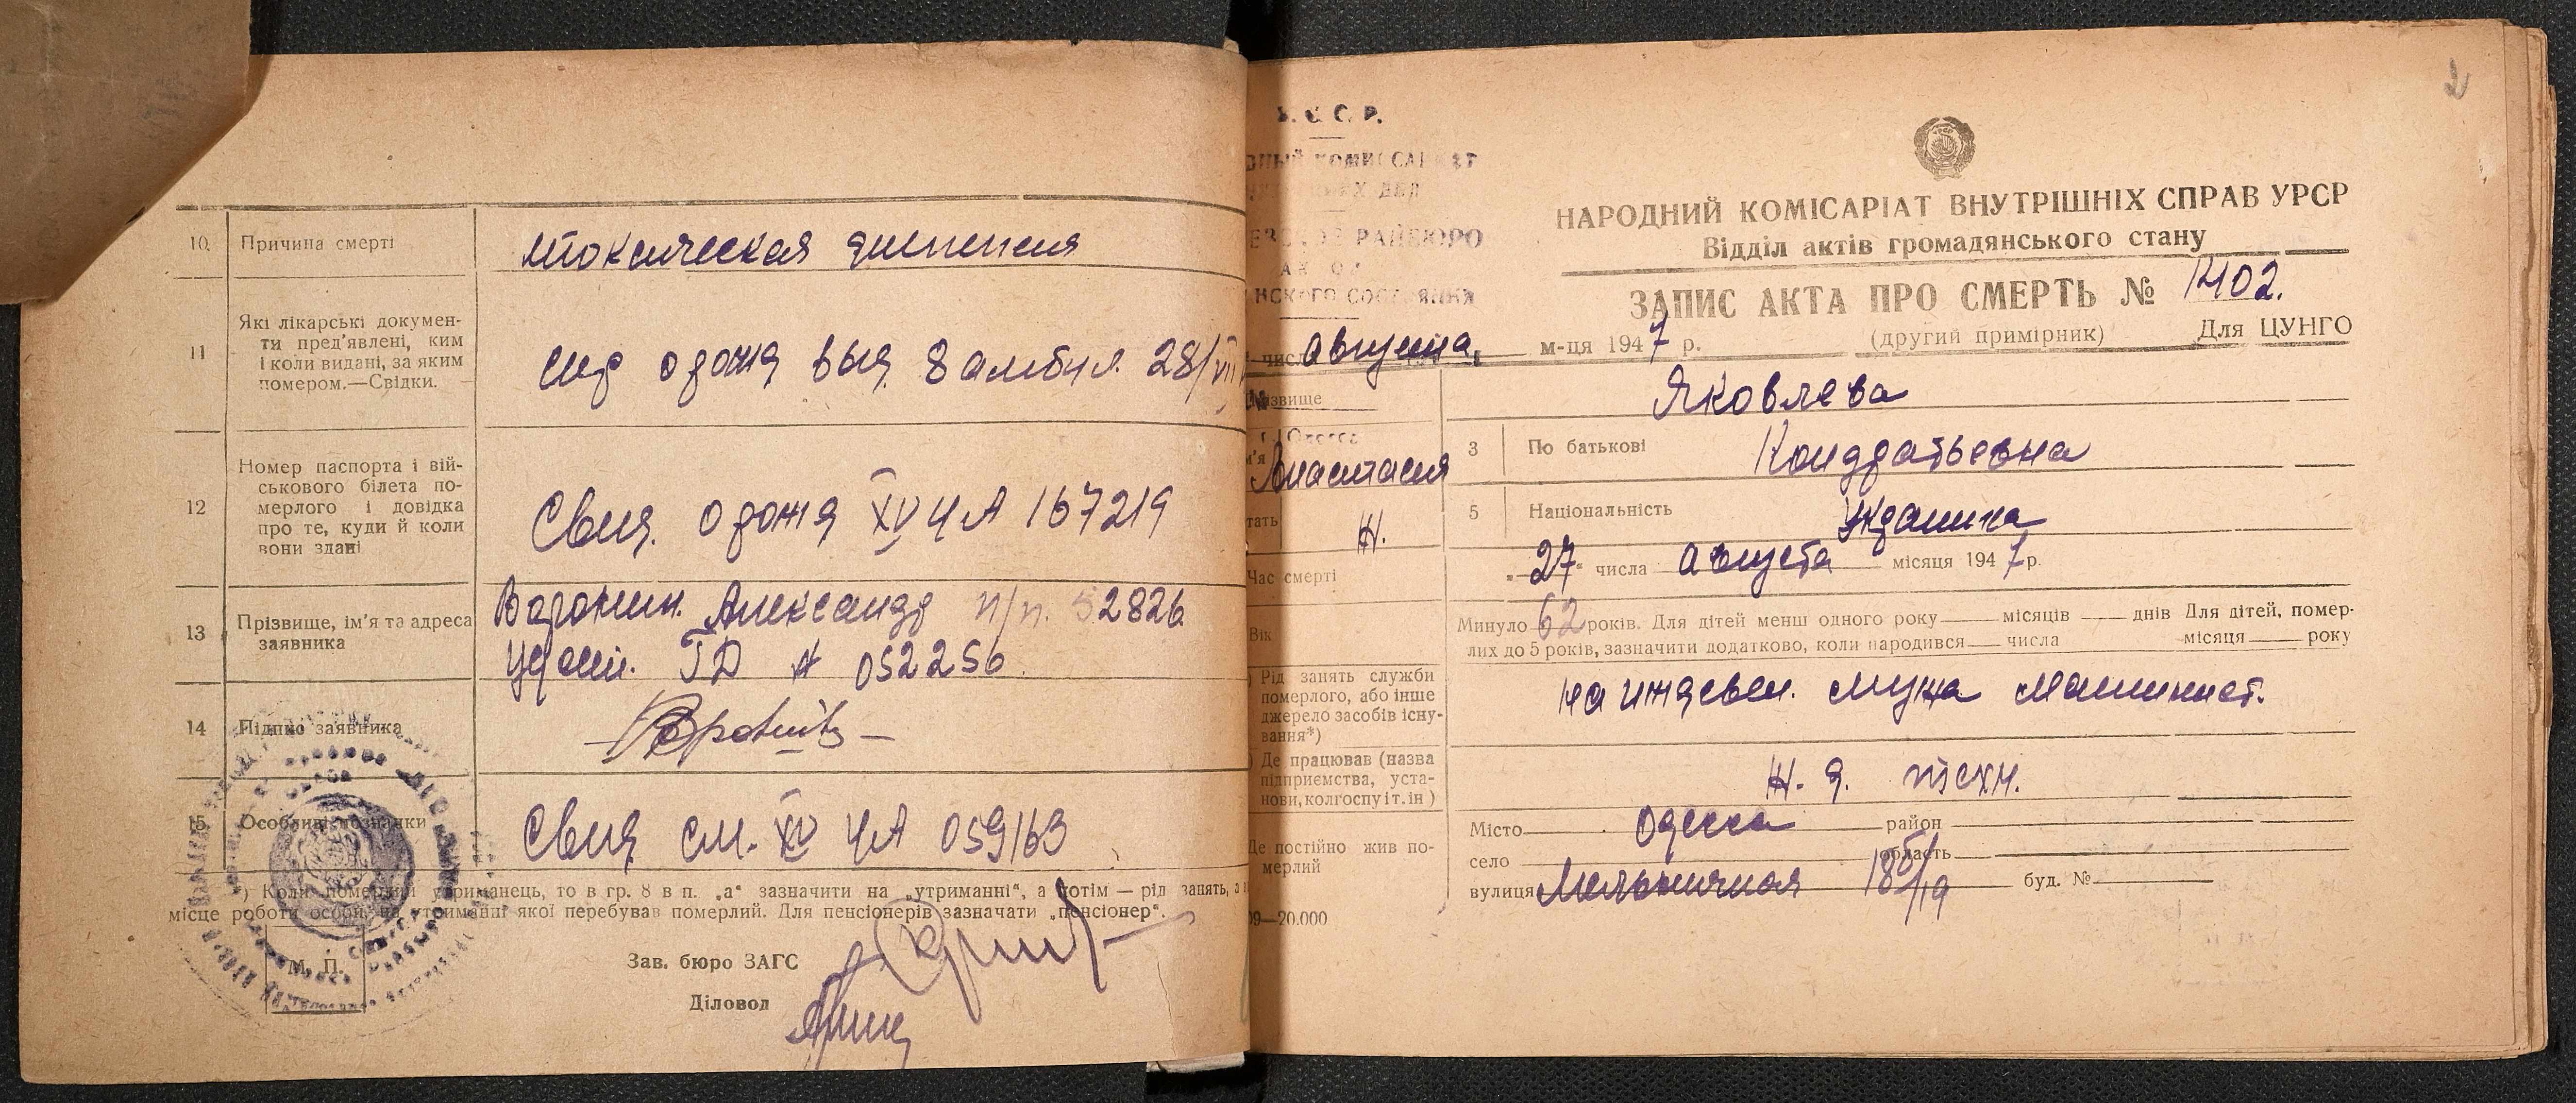 10. Причина смерті
токсическая диспепсия
11 Які лікарські докумен-
ти пред'явлені, ким
і коли видані, за яким
номером.—Свідки.
выд. 8 амбул. 28/VIII
12 Номер паспорта і вій-
ськового білета по-
мерлого і довідка
про те, куди й коли
вони здані
Свид. о рожд XV ЧА 167219
13 Прізвище, ім'я та адреса
заявника
Воронин. Александр п/п. 52826
удост. ГД № 052256
14 Підпис заявника
15. Особливі познанки
Свид см. XV ЧА 059163
*) Коли померлий утриманець, то в гр. 8 в п. „а“ зазначити на „утриманні“, а потім — рід занять, а
місце роботи особи, на утриманні якої перебував померлий. Для пенсіонерів зазначати „пенсіонер“.
М. П.
Зав. бюро ЗАГС
Діловод
2
С. С. Р.
КОМИССАРИАТ
ДЕЛ
РАЙБЮРО
НАРОДНИЙ КОМІСАРІАТ ВНУТРІШНІХ СПРАВ УРСР
Відділ актів громадянського стану
ЗАПИС АКТА ПРО СМЕРТЬ № 1402.
(другий примірник) Для ЦУНГО
числ августа м-ця 1947 р.
Прізвище Яковлева
г. Одесса
м'я Анастасия
3 По батькові Кондратьевна
тать Ж.
5 Національність
Час смерті „27“ числа августа місяця 1947 р.
Вік Минуло 62 років. Для дітей менш одного року місяців днів Для дітей, помер-
лих до 5 років, зазначити додатково, коли народився числа місяця року
) Рід занять служби
померлого, або інше
джерело засобів існу-
вання*)
на иждевен. мужа машинист.
) Де працював (назва
підприємства, уста-
нови, колгоспу і т. ін)
Ж. д. техн.
Де постійно жив по-
мерлий
Місто Одесса район
село область
вулиця Мельничная 18б/19 буд. №
09—20.000